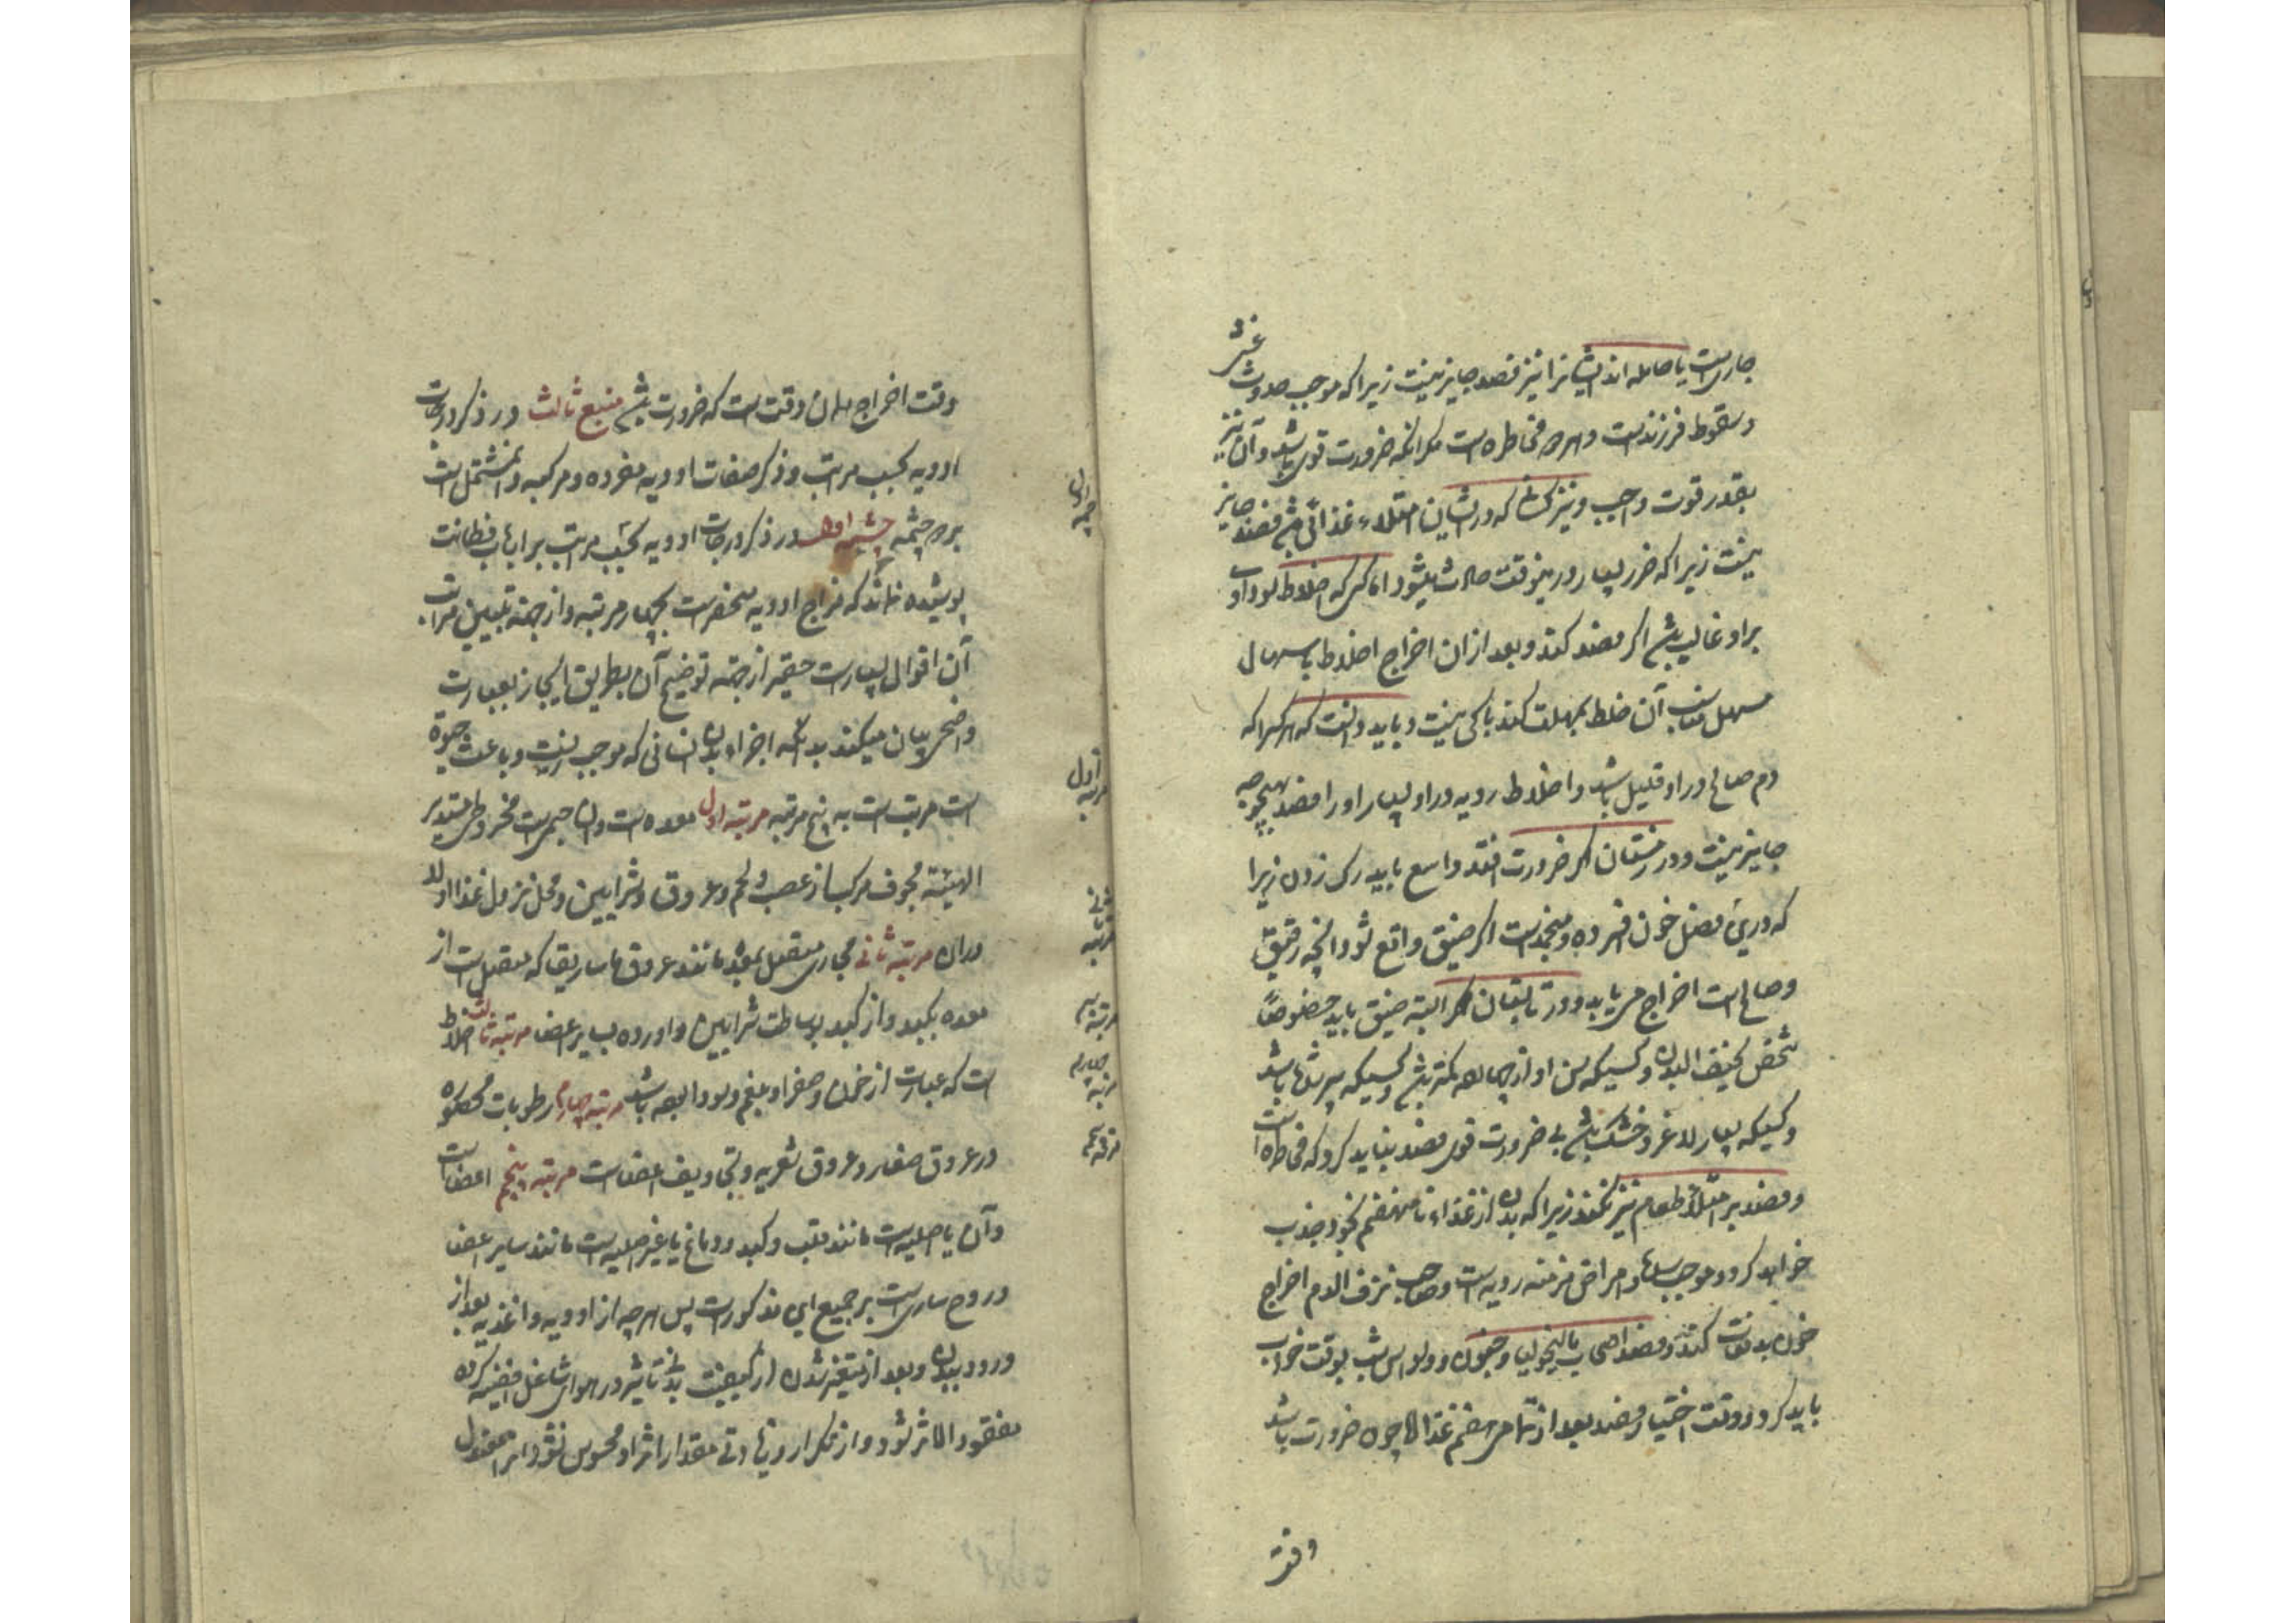 جاریست یا حامله اند ایشانرا نیز فصد جایز نیست زیرا که موجب حدوث غشی
و سقوط فرزندست و هر دو مخاطره است مکر آنکه ضرورت قوی باشد و آن نیز
بقدر قوت واجب و نیز کسانی که در ایشان امتلاء غذائی باشد فصد جایز
نیست زیرا که ضرر بسیار درینوقت حادث میشود اما کسی که اخلاط سوداوی
براو غالب باشد اکر فصد کند و بعد ازان اخراج اخلاط باسهال
مسهل مناسب آن خلط بمهلت کند باکی نیست و باید دانست که هر کرا که
دم صالح در او قلیل باشد و اخلاط ردیه در او بسیار او را فصد بهیچوجه
جایز نیست و در زمستان اکر ضرورت افتد واسع باید رک زدن زیرا
که درین فصل خون افسرده و منجمدست اکر ضیق واقع شود آنچه رقیق
و صالح است اخراج می یابد و در تابستان البته ضیق باید خصوصاً
شخص نحیف البدن و کسیکه سن او از چهارده کمتر باشد و کسیکه پیر باشد
و کسیکه بسیار لاغر و خشک باشد بی ضرورت قوی فصد نباید کرد که مخاطره است
و فصد بر امتلاء طعام نیز نکنند زیرا که بدن از غذاء نامنهضم بخود جذب
خواهد کرد و موجب سدها و امراض مزمنه ردیه است و صاحب نزف الدم اخراج
خون بدفعات کند و فصد اصحاب مالیخولیا و جنون و وسواس شب بوقت خواب
باید کرد و وقت اختیار فصد بعد از تمامی هضم غذا اما چون ضرورت باشد
وقت
وقت اخراج همان وقت است که ضرورت باشد منبع ثالث در ذکر درجات
ادویه بحسب مراتب و ذکر صفات ادویه مفرده و مرکبه و آن مشتمل است
بر دو چشمه چشمه اول در ذکر درجات ادویه بحسب مراتب بر ارباب فطانت
پوشیده نماند که مزاج ادویه منحصرست بچهار مرتبه و از جهة تبیین مراتب
آن اقوال بسیارست حقیر از جهة توضیح آن بطریق ایجاز بعبارت
واضح بیان میکند بدانکه اجزاء بدن انسانی که موجب زیست و باعث حیوة
است مرتب است به پنج مرتبه مرتبه اول معده است و آن جسمیست مخروطی مستدیر
الهیئة مجوف مرکب از عصب و لحم و عروق و شرایین و محل نزول غذا اولا
دران مرتبه ثانی مجاری متصل بمعده مانند عروق ماساریقا که متصل است از
معده بکبد و از کبد بوساطت شرایین و اورده بسایر اعضا مرتبه ثالث اخلاط
است که عبارت از خون و صفرا و بلغم و سودا بوده باشد مرتبه چهارم رطوبات محصوره
در عروق صغار و عروق شعریه و تجاویف اعضاست مرتبه پنجم اعضاست
و آن یا اصلیست مانند قلب و کبد و دماغ یا غیر اصلیه است مانند سایر اعضا
و روح ساریست بر جمیع این مذکورات پس هر چه از ادویه و اغذیه بعد از
ورود ببدن و بعد از متغیر شدن از کیفیت بدنی تاثیر در هوای شاغل افضیه کرده
مفقود الاثر شود و از تکرار و زیادتی مقدار اثر او محسوس نشود
چشمه اول
مرتبه اول
مرتبه ثانی
مرتبه سیم
مرتبه چهارم